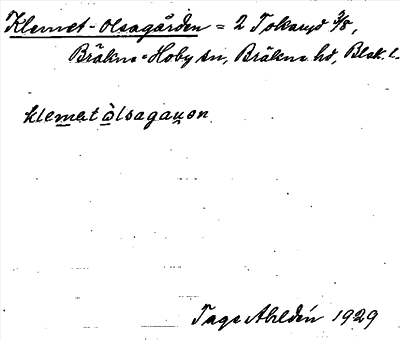 Klemet-Olsagården = 2 Tokaryd 3/8,
Bräkne-Hoby sn, Bräkne hd, Blek. l.
klemat òlsagauen
Tage Ahldén 1929